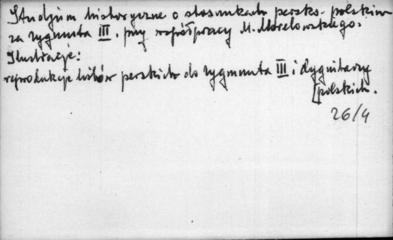 Studjum historyczne o stosunkach persko-polskim
za Zygmunta III, przy współpracy M. Morelowskiego.
Ilustracje:
reprodukcje listów perskich do Zygmunta III i dygnitarzy
polskich.
26/4